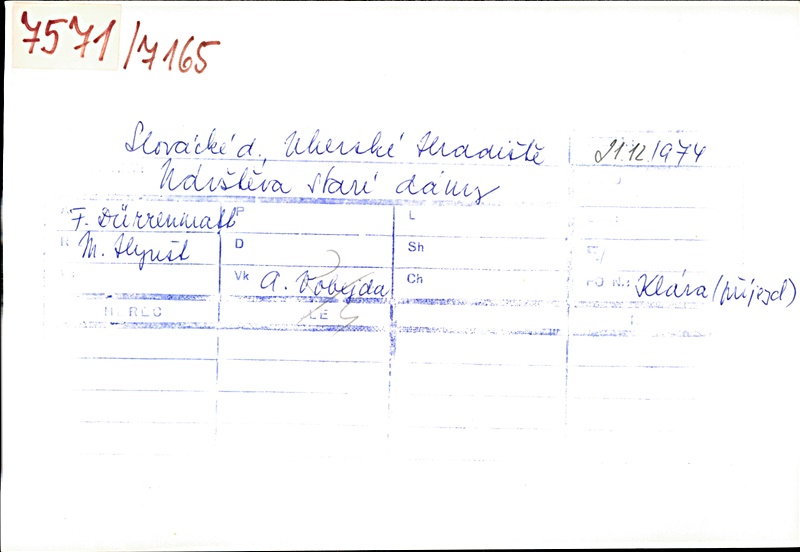 7571/7165
Slovácké d., Uherské Hradiště 21.12.1974
Návštěva staré dámy
F. Dürrenmatt P L
R M. Hynšt D Sh
Vk A. Vobejda Ch Klára (příjezd)
HEREC LE